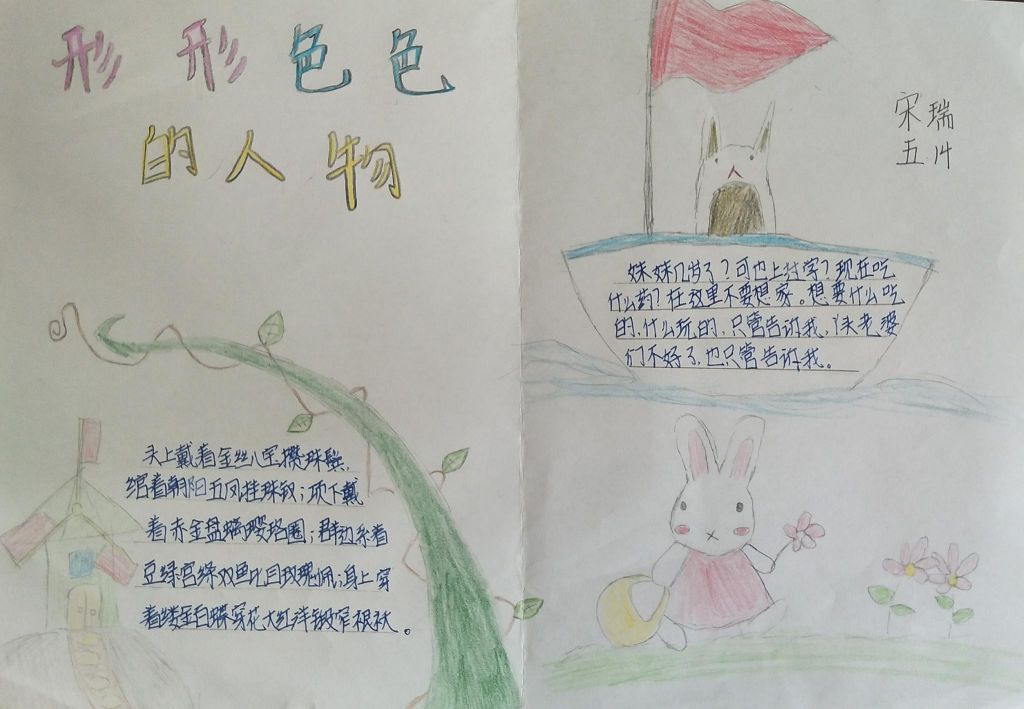 形形色色
的人物
头上戴着金丝八宝攒珠髻，
绾着朝阳五凤挂珠钗；项下戴
着赤金盘螭璎珞圈；裙边系着
豆绿宫绦双鱼比目玫瑰佩；身上穿
着缕金百蝶穿花大红洋缎窄裉袄。
宋瑞
五.14
妹妹几岁了？可也上过学？现在吃
什么药？在这里不要想家。想要什么吃
的、什么玩的，只管告诉我，丫头老婆
们不好了，也只管告诉我。